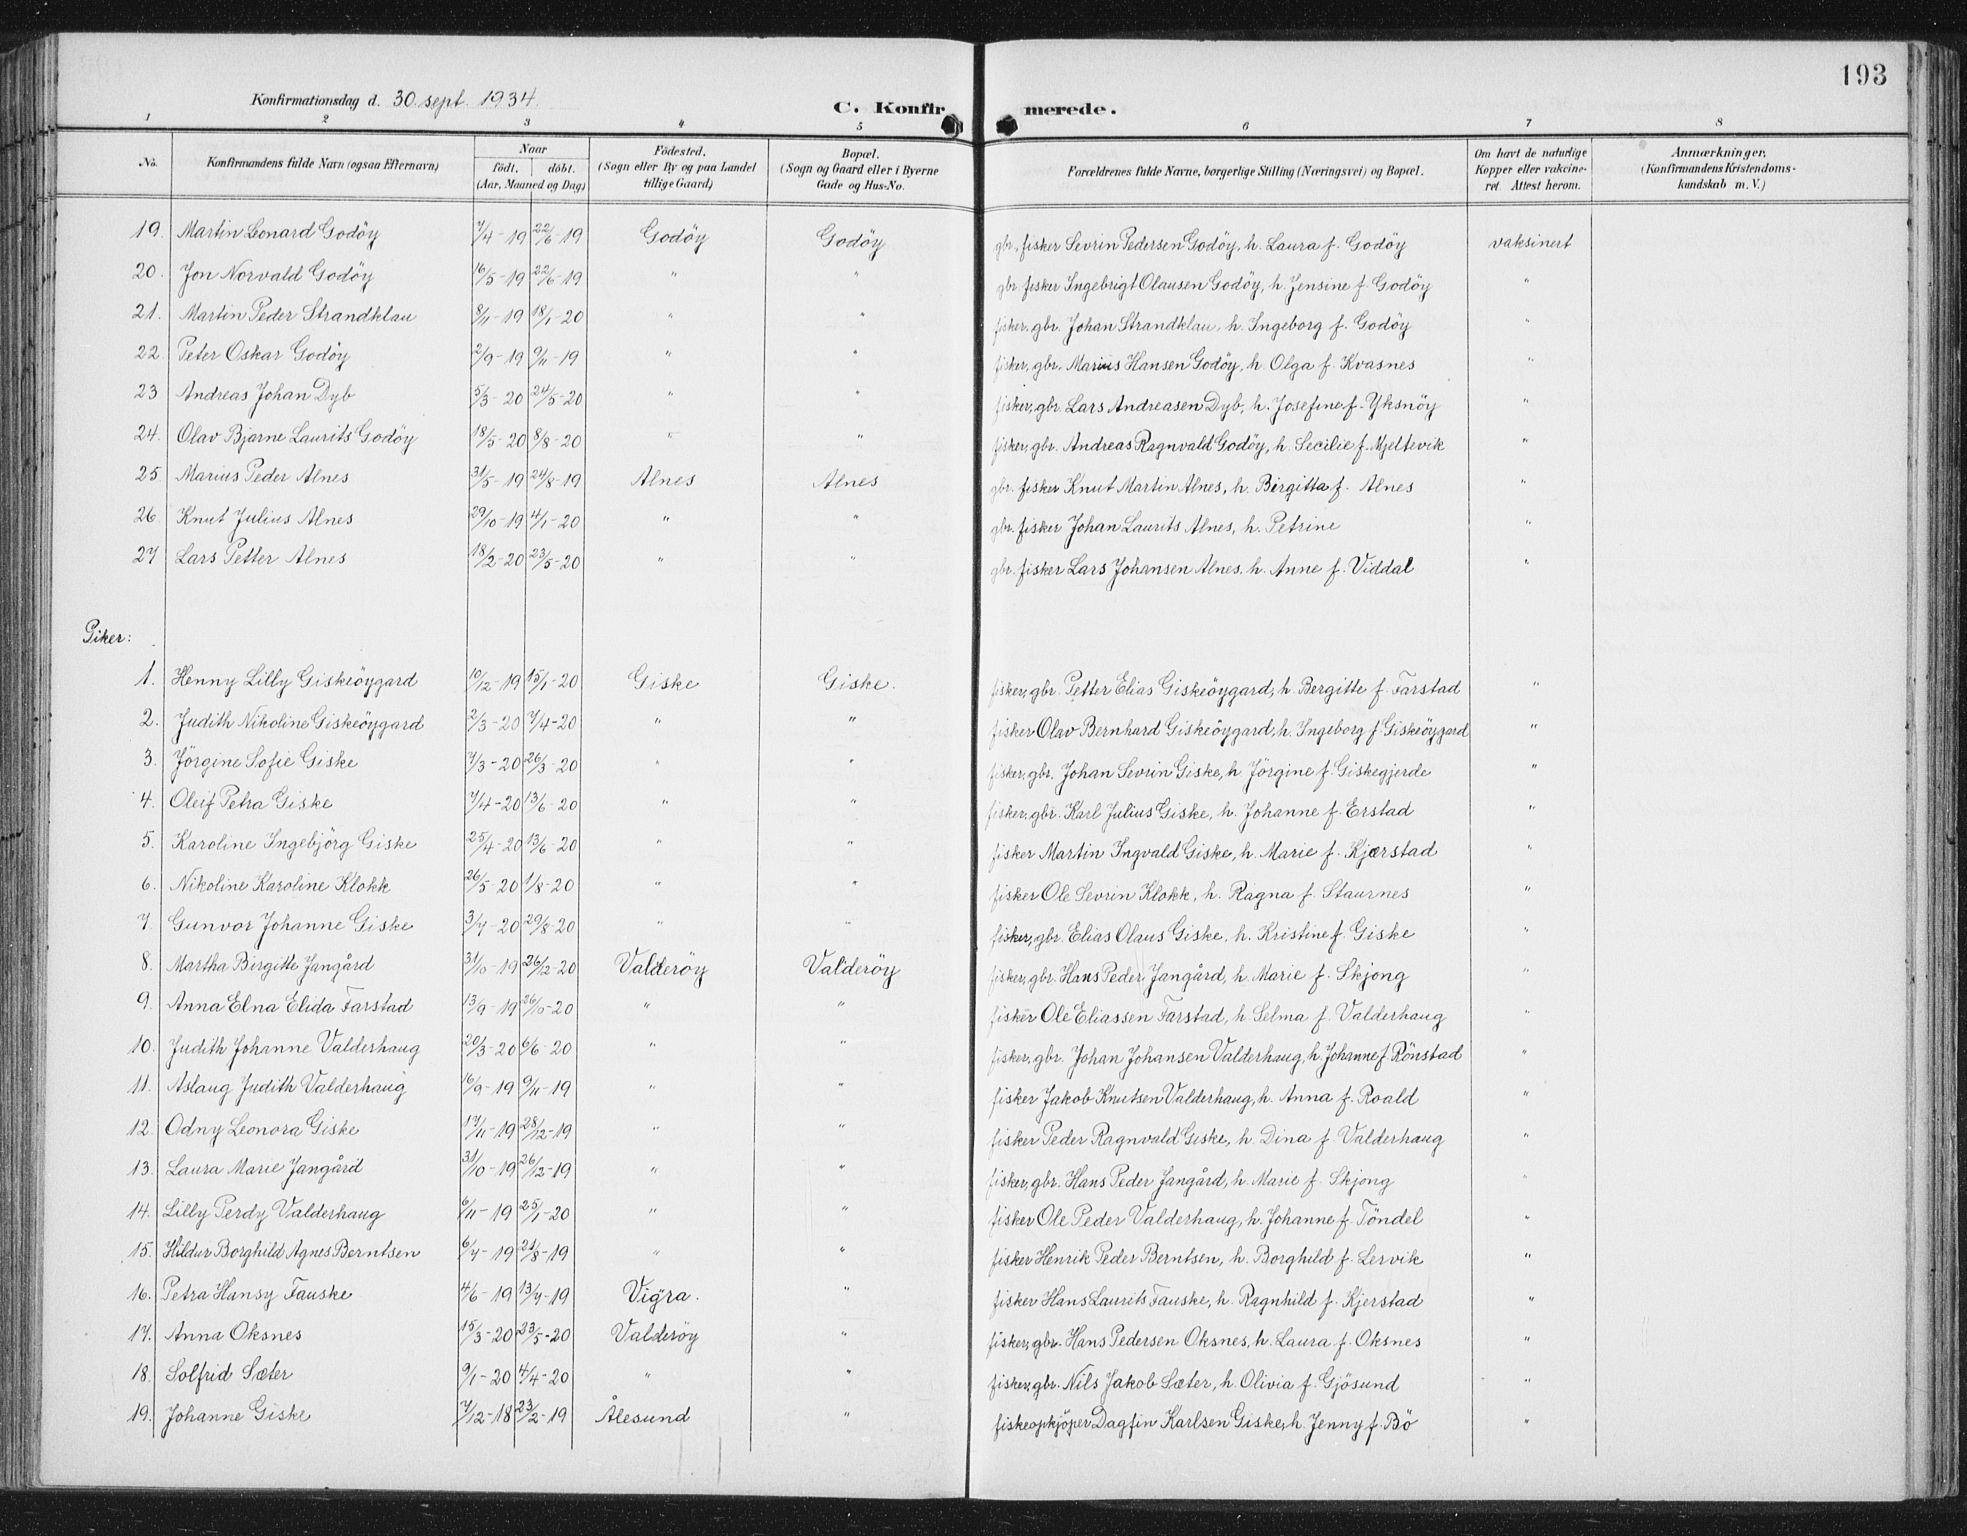 193
Konfirmationsdag d. 30 sept. 1934.
C. Konfirmerede.
1 2 3 4 5 6 7 8
No. Konfirmandens fulde Navn (ogsaa Efternavn) Naar födt. döbt. (Aar, Maaned og Dag) Födested. (Sogn eller By og paa Landet tillige Gaard) Bopæl. (Sogn og Gaard eller i Byerne Gade og Hus-No. Forældrenes fulde Navne, borgerlige Stilling (Næringsvei) og Bopæl. Om havt de naturlige Kopper eller vakcineret. Attest herom. Anmærkninger. (Konfirmandens Kristendomskundskab m. V.)
19. Martin Leonard Godöy 7/4-19 22/6-19 Godöy Godöy gbr., fisker Sevrin Pedersen Godöy, h. Laura f. Godöy vaksinert
20. Jon Norvald Godöy 16/5-19 22/6-19 " " gbr. fisker Ingebrigt Olausen Godöy, h. Jensine f. Godöy "
21. Martin Peder Strandklau 8/11-19 18/1-20 " " fisker, gbr. Johan Strandklau, h. Ingeborg f. Godöy "
22. Peter Oskar Godöy 2/9-19 9/11-19 " " fisker, gbr. Marius Hansen Godöy, h. Olga f. Kvasnes "
23 Andreas Johan Dyb 5/3-20 24/5-20 " " fisker, gbr. Lars Andreasen Dyb, h. Josefine f. Yksnöy "
24. Olav Bjarne Laurits Godöy 18/5-20 8/8-20 " " fisker, gbr. Andreas Ragnvald Godöy, h. Secilie f. Mjeltevik "
25 Marius Peder Alnes 31/5-19 24/8-19 Alnes Alnes gbr. fisker Knut Martin Alnes, h. Birgitta f. Alnes "
26. Knut Julius Alnes 29/10-19 4/1-20 " " gbr. fisker Johan Laurits Alnes, h. Petrine "
27 Lars Petter Alnes 18/2-20 23/5-20 " " gbr. fisker Lars Johansen Alnes, h. Anne f. Viddal "
Piker:
1. Henny Lilly Giskeöygard 10/12-19 15/1-20 Giske Giske. fisker, gbr. Petter Elias Giskeöygard, h. Bergitte f. Farstad "
2. Judith Nikoline Giskeöygard 2/3-20 7/4-20 " " fisker Olav Bernhard Giskeöygard, h. Ingeborg f. Giskeöygard "
3. Jörgine Sofie Giske 7/3-20 26/3-20 " " fisker, gbr. Johan Sevrin Giske, h. Jörgine f. Giskegjerde "
4. Oleif Petra Giske 7/4-20 13/6-20 " " fisker, gbr. Karl Julius Giske, h. Johanne f. Erstad "
5. Karoline Ingebjörg Giske 25/4-20 13/6-20 " " fisker Martin Ingvald Giske, h. Marie f. Kjærstad "
6. Nikoline Karoline Klokk 26/5-20 1/8-20 " " fisker Ole Sevrin Klokk, h. Ragna f. Staurnes "
7. Gunvor Johanne Giske 3/7-20 29/8-20 " " fisker, gbr. Elias Olaus Giske, h. Kristine f. Giske "
8. Martha Birgitte Jangård 31/10-19 26/12-20 Valderöy Valderöy fisker, gbr. Hans Peder Jangård, h. Marie f. Skjong "
9. Anna Elna Elida Farstad 13/9-19 26/10-20 " " fisker Ole Eliassen Farstad, h. Selma f. Valderhaug "
10. Judith Johanne Valderhaug 20/3-20 6/6-20 " " fisker, gbr. Johan Johansen Valderhaug, h. Johanne f. Rönstad "
11. Aslaug Judith Valderhaug 16/9-19 9/11-19 " " fisker Jakob Knutsen Valderhaug, h. Anna f. Roald "
12. Odny Leonora Giske 17/11-19 28/12-19 " " fisker Peder Ragnvald Giske, h. Dina f. Valderhaug "
13. Laura Marie Jangård 31/10-19 26/12-19 " " fisker, gbr. Hans Peder Jangård, h. Marie f. Skjong "
14. Lilly Perdy Valderhaug 6/11-19 25/1-20 " " fisker Ole Peder Valderhaug, h. Johanne f. Töndel "
15. Hildur Borghild Agnes Berntsen 6/7-19 21/8-19 " " fisker Henrik Peder Berntsen, h. Borghild f. Lervik "
16. Petra Hansy Fauske 4/6-19 13/7-19 Vigra. " fisker Hans Laurits Fauske, h. Ragnhild f. Kjerstad "
17. Anna Oksnes 15/3-20 23/5-20 Valderöy " fisker, gbr. Hans Pedersen Oksnes, h. Laura f. Oksnes "
18. Solfrid Sæter 9/1-20 4/4-20 " " fisker, gbr. Nils Jakob Sæter, h. Olivia f. Gjösund "
19. Johanne Giske 7/12-18 23/2-19 Ålesund " fiskeopkjöper Dagfin Karlsen Giske, h. Jenny f. Bö "